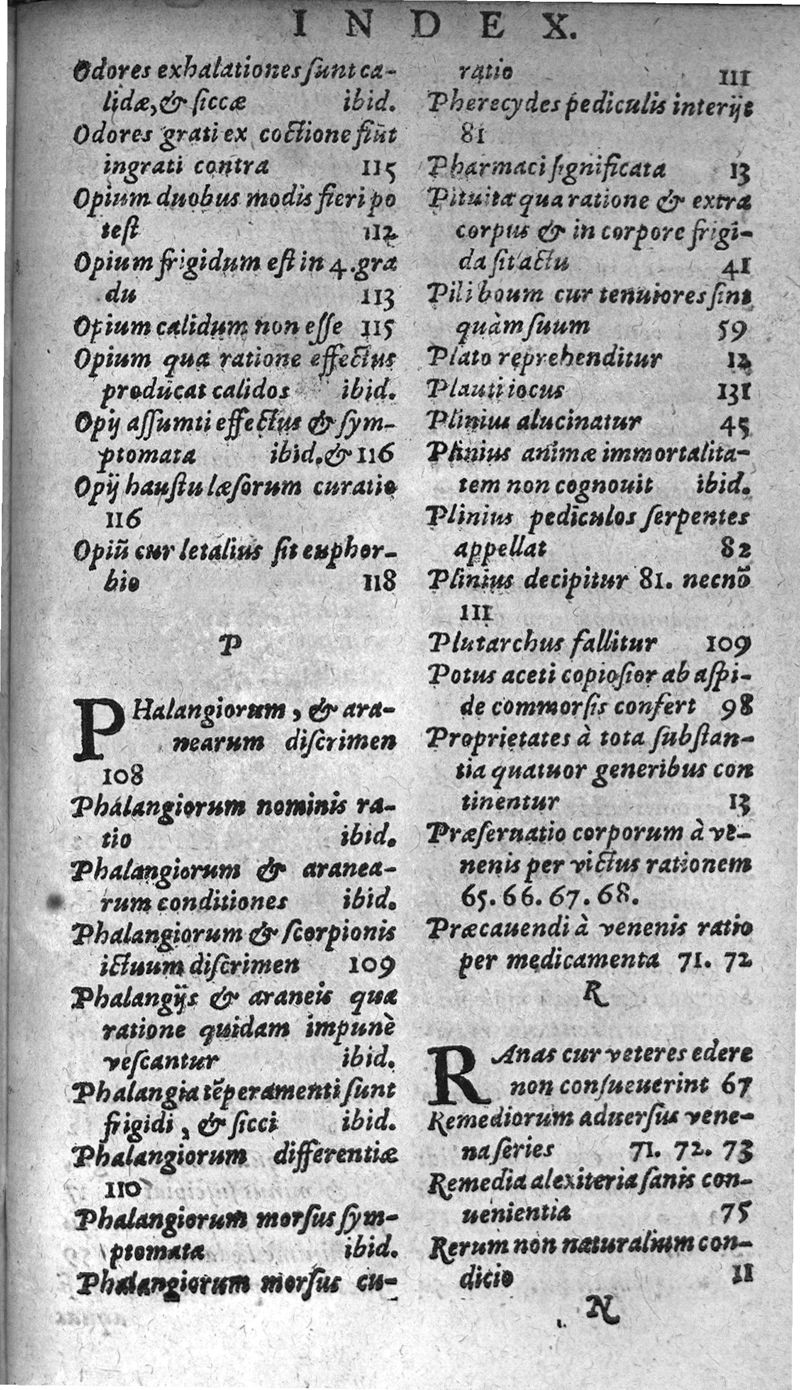 INDEX.
Odores exhalationes ſunt ca-
lidæ, & ſiccæ ibid.
Odores grati ex coctione fiūt
ingrati contra 115
Opium duobus modis fieri po
teſt 112
Opium frigidum eſt in 4. gra
du 113
Opium calidum non eſſe 115
Opium qua ratione effectus
producat calidos ibid.
Opij aſſumti effectus & ſym-
ptomata ibid. & 116
Opij hauſtu læſorum curatio
116
Opiū cur letalius ſit euphor-
bio 118
P
PHalangiorum, & ara-
nearum diſcrimen
108
Phalangiorum nominis ra-
tio ibid.
Phalangiorum & aranea-
rum conditiones ibid.
Phalangiorum & ſcorpionis
ictuum diſcrimen 109
Phalangijs & araneis qua
ratione quidam impunè
veſcantur ibid.
Phalangia tēperamenti ſunt
frigidi, & ſicci ibid.
Phalangiorum differentiæ
110
Phalangiorum morſus ſym-
ptomata ibid.
Phalangiorum morſus cu-
ratio 111
Pherecydes pediculis interijt
81
Pharmaci ſignificata 13
Pituita qua ratione & extra
corpus & in corpore frigi-
da ſit actu 41
Pili boum cur tenuiores ſint
quàm ſuum 59
Plato reprehenditur 12
Plauti iocus 131
Plinius alucinatur 45
Plinius animæ immortalita-
tem non cognouit ibid.
Plinius pediculos ſerpentes
appellat 82
Plinius decipitur 81. necnō
111
Plutarchus fallitur 109
Potus aceti copioſior ab aſpi-
de commorſis confert 98
Proprietates à tota ſubſtan-
tia quatuor generibus con
tinentur 13
Præſeruatio corporum à ve-
nenis per victus rationem
65. 66. 67. 68.
Præcauendi à venenis ratio
per medicamenta 71. 72
R
RAnas cur veteres edere
non conſueuerint 67
Remediorum aduerſus vene-
na ſeries 71. 72. 73
Remedia alexiteria ſanis con-
uenientia 75
Rerum non naturalium con-
ditio 11
N